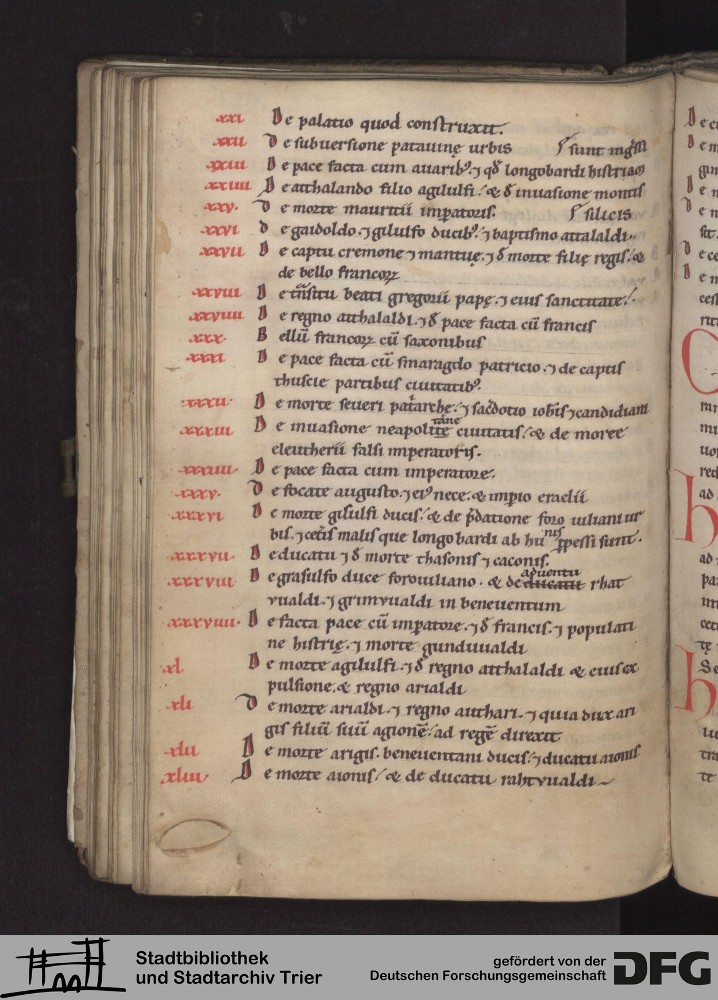 xxi De palatio quod construxit.
xxii De subuersione patauinę urbis
xxiii De pace facta cum auarib; ⁊ qd longobardi histriam sunt ingssi
xxiiii De atthalando filio agilulfi. & d inuasione montis
xxv. De morte mauritii imperatoris. silicis
xxvi De gaidoldo. ⁊ gilulfo ducib; ⁊ baptismo attalaldi.
xxvii De captu cremone ⁊ mantuę. ⁊ d morte filię regis. &
de bello francoꝝ
xxviii De tnsitu beati gregorii papę. ⁊ eius sanctitate.
xxviiii De regno atthalaldi. ⁊ d pace facta cū francis
xxx. Bellū francoꝝ cū saxonibus
xxxi De pace facta cū smaragdo patricio. ⁊ de captis
thuscie partibus ciuitatib;
xxxii. De morte seueri patarche. ⁊ sacdotio iohis ⁊ candidiani
xxxiii De inuasione neapolitane ciuitatis. & de morte
eleutherii falsi imperatoris.
xxxiiii. De pace facta cum imperatore.
xxxv. De focate augusto. ⁊ ei; nece. & impio eraclii
xxxvi De morte gisulfi ducis. & de pdatione foro iuliani ur
bis. ⁊ cetis malis que longobardi ab hunis ppessi sunt.
xxxvii. De ducatu ⁊ d morte thasonis ⁊ caconis.
xxxviii De grasulfo duce foroiuliano. & de ducatu aduentu rhat
vualdi. ⁊ grimvualdi in beneuentum
xxxviiii. De facta pace cū impatore. ⁊ d francis. ⁊ populati
ne histrię. ⁊ morte gunduualdi
xl De morte agilulfi. ⁊ d regno atthalaldi & eius ex
pulsione. & regno arialdi
xli De morte arialdi. ⁊ regno authari. ⁊ quia dux ari
gis filiū suū agionē. ad regē direxit
xlii De morte arigis. beneuentani ducis. ⁊ ducatu aionis
xliii. De morte aionis. & de ducatu rahtvualdi
Stadtbibliothek
und Stadtarchiv Trier
gefördert von der
Deutschen Forschungsgemeinschaft
DFG